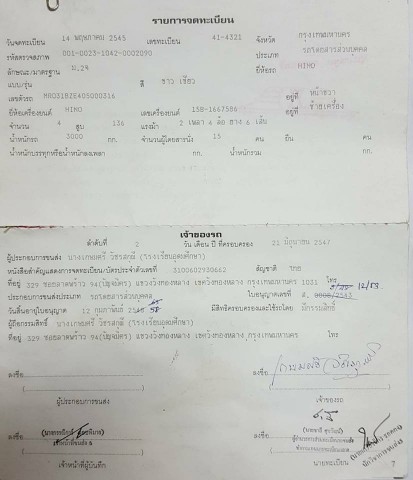 รายการจดทะเบียน
วันจดทะเบียน 14 พฤษภาคม 2545 เลขทะเบียน 41-4321 จังหวัด กรุงเทพมหานคร
รหัสตรวจสภาพ 006-0023-1042-0002090 ประเภท รถโดยสารส่วนบุคคล
ลักษณะ/มาตรฐาน ม.2จ ยี่ห้อรถ HINO
แบบ/รุ่น สี ขาว เขียว
เลขตัวรถ อยู่ที่ หน้าขวา
ยี่ห้อเครื่องยนต์ HINO เลขเครื่องยนต์ 158-1667586 อยู่ที่ ซ้ายเครื่อง
จำนวน 4 สูบ 136 แรงม้า 2 เพลา 4 ล้อ ยาง 6 เส้น
น้ำหนักรถ 3000 กก. จำนวนผู้โดยสารนั่ง 15 คน ยืน คน
น้ำหนักบรรทุกหรือน้ำหนักลงเพลา กก. น้ำหนักรวม กก.
เจ้าของรถ
ลำดับที่ 2 วัน เดือน ปี ที่ครอบครอง 21 มิถุนายน 2547
ผู้ประกอบการขนส่ง นางเกษมศรี (โรงเรียนอุดมศึกษา)
หนังสือสำคัญแสดงการจดทะเบียน/บัตรประจำตัวเลขที่ 3100602930662 สัญชาติ ไทย
ที่อยู่ 329 ซอยลาดพร้าว 94(ปัญจมิตร) แขวงวังทองหลาง เขตวังทองหลาง กรุงเทพมหานคร 1031 โทร
ประกอบการขนส่งประเภท รถโดยสารส่วนบุคคล ใบอนุญาตเลขที่ 12/53
วันสิ้นอายุใบอนุญาต 12 กุมภาพันธ์ มีสิทธิครอบครองและใช้รถโดย มีกรรมสิทธิ์
ผู้ถือกรรมสิทธิ์ นางเกษมศรี (โรงเรียนอุดมศึกษา)
ที่อยู่ 329 ซอยลาดพร้าว 94(ปัญจมิตร) แขวงวังทองหลาง เขตวังทองหลาง กรุงเทพมหานคร โทร
ลงชื่อ ลงชื่อ
ผู้ประกอบการขนส่ง เจ้าของรถ
ลงชื่อ ลงชื่อ
เจ้าหน้าที่ผู้บันทึก นายทะเบียน
7